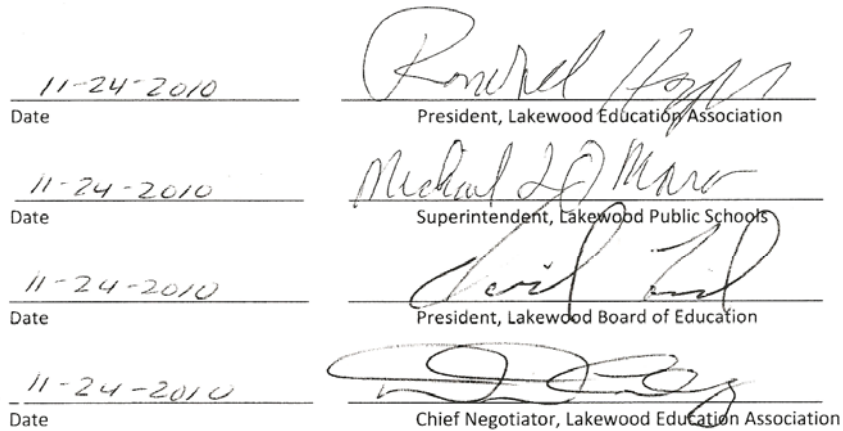 11-24-2010
Date President, Lakewood Education Association
11-24-2010 Michael
Date Superintendent, Lakewood Public Schools
11-24-2010 David
Date President, Lakewood Board of Education
11-24-2010
Date Chief Negotiator, Lakewood Education Association